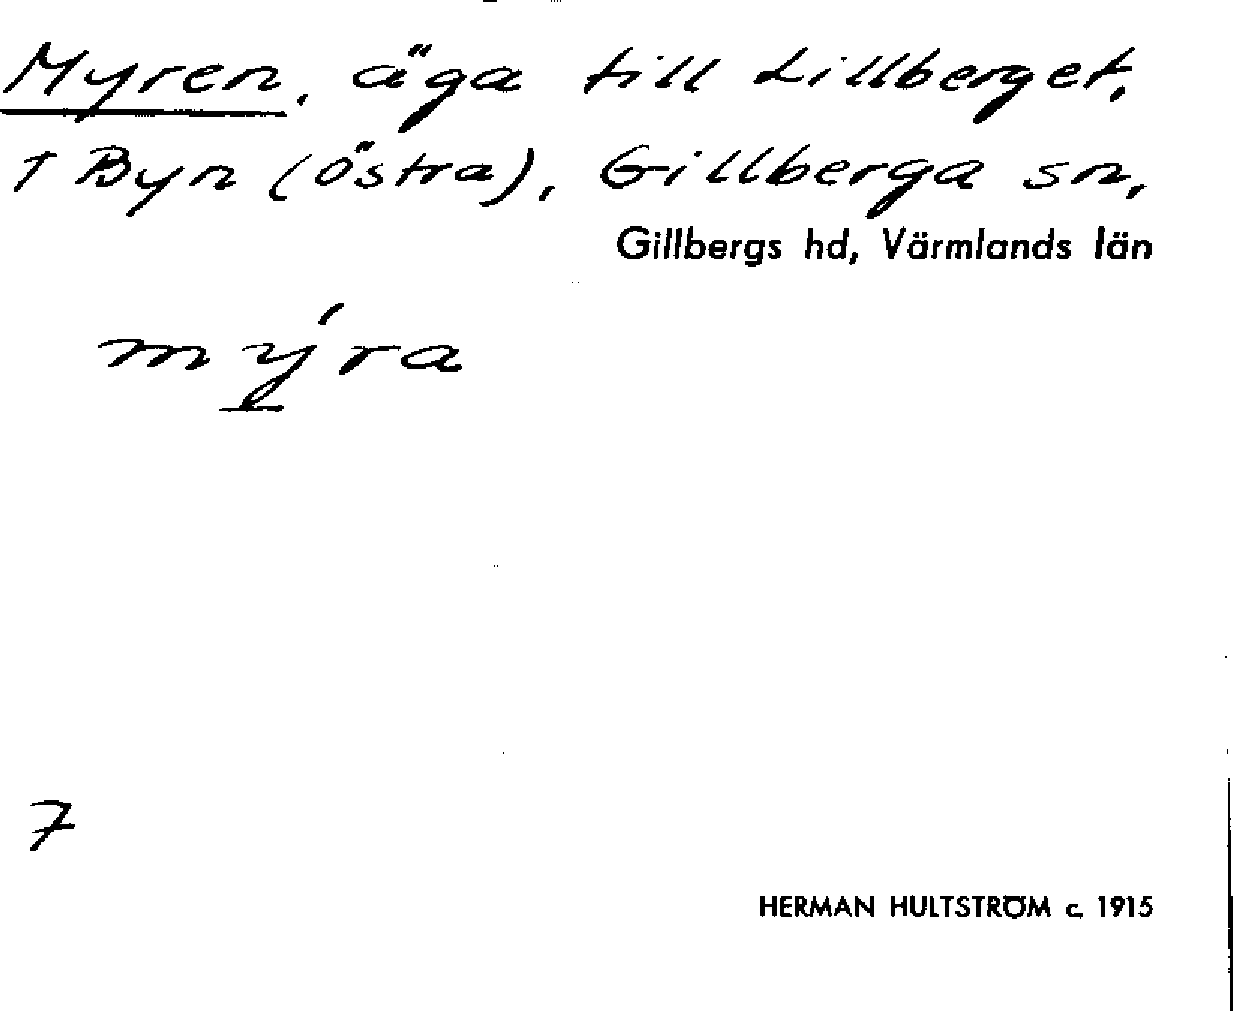 Myren, äga till Lillberget,
1 Byn (östra), Gillberga sn,
Gillbergs hd, Värmlands län
mýra
7
HERMAN HULTSTRÖM c. 1915